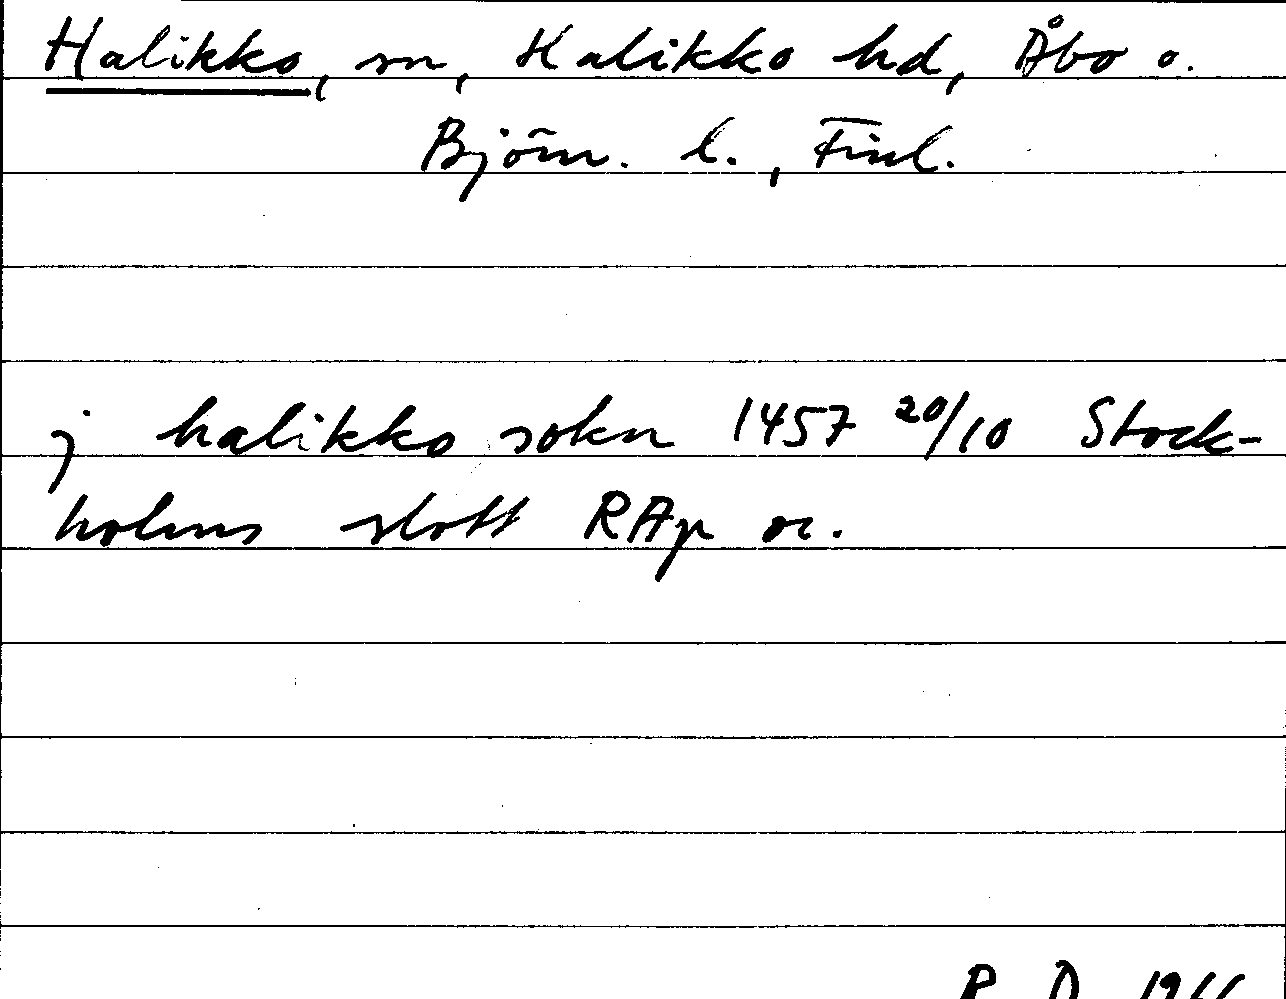 Halikko, sn, Halikko hd, Åbo o.
Björn. l., Finl.
j halikko sokn 1457 20/10 Stock-
holms slott RAp or.